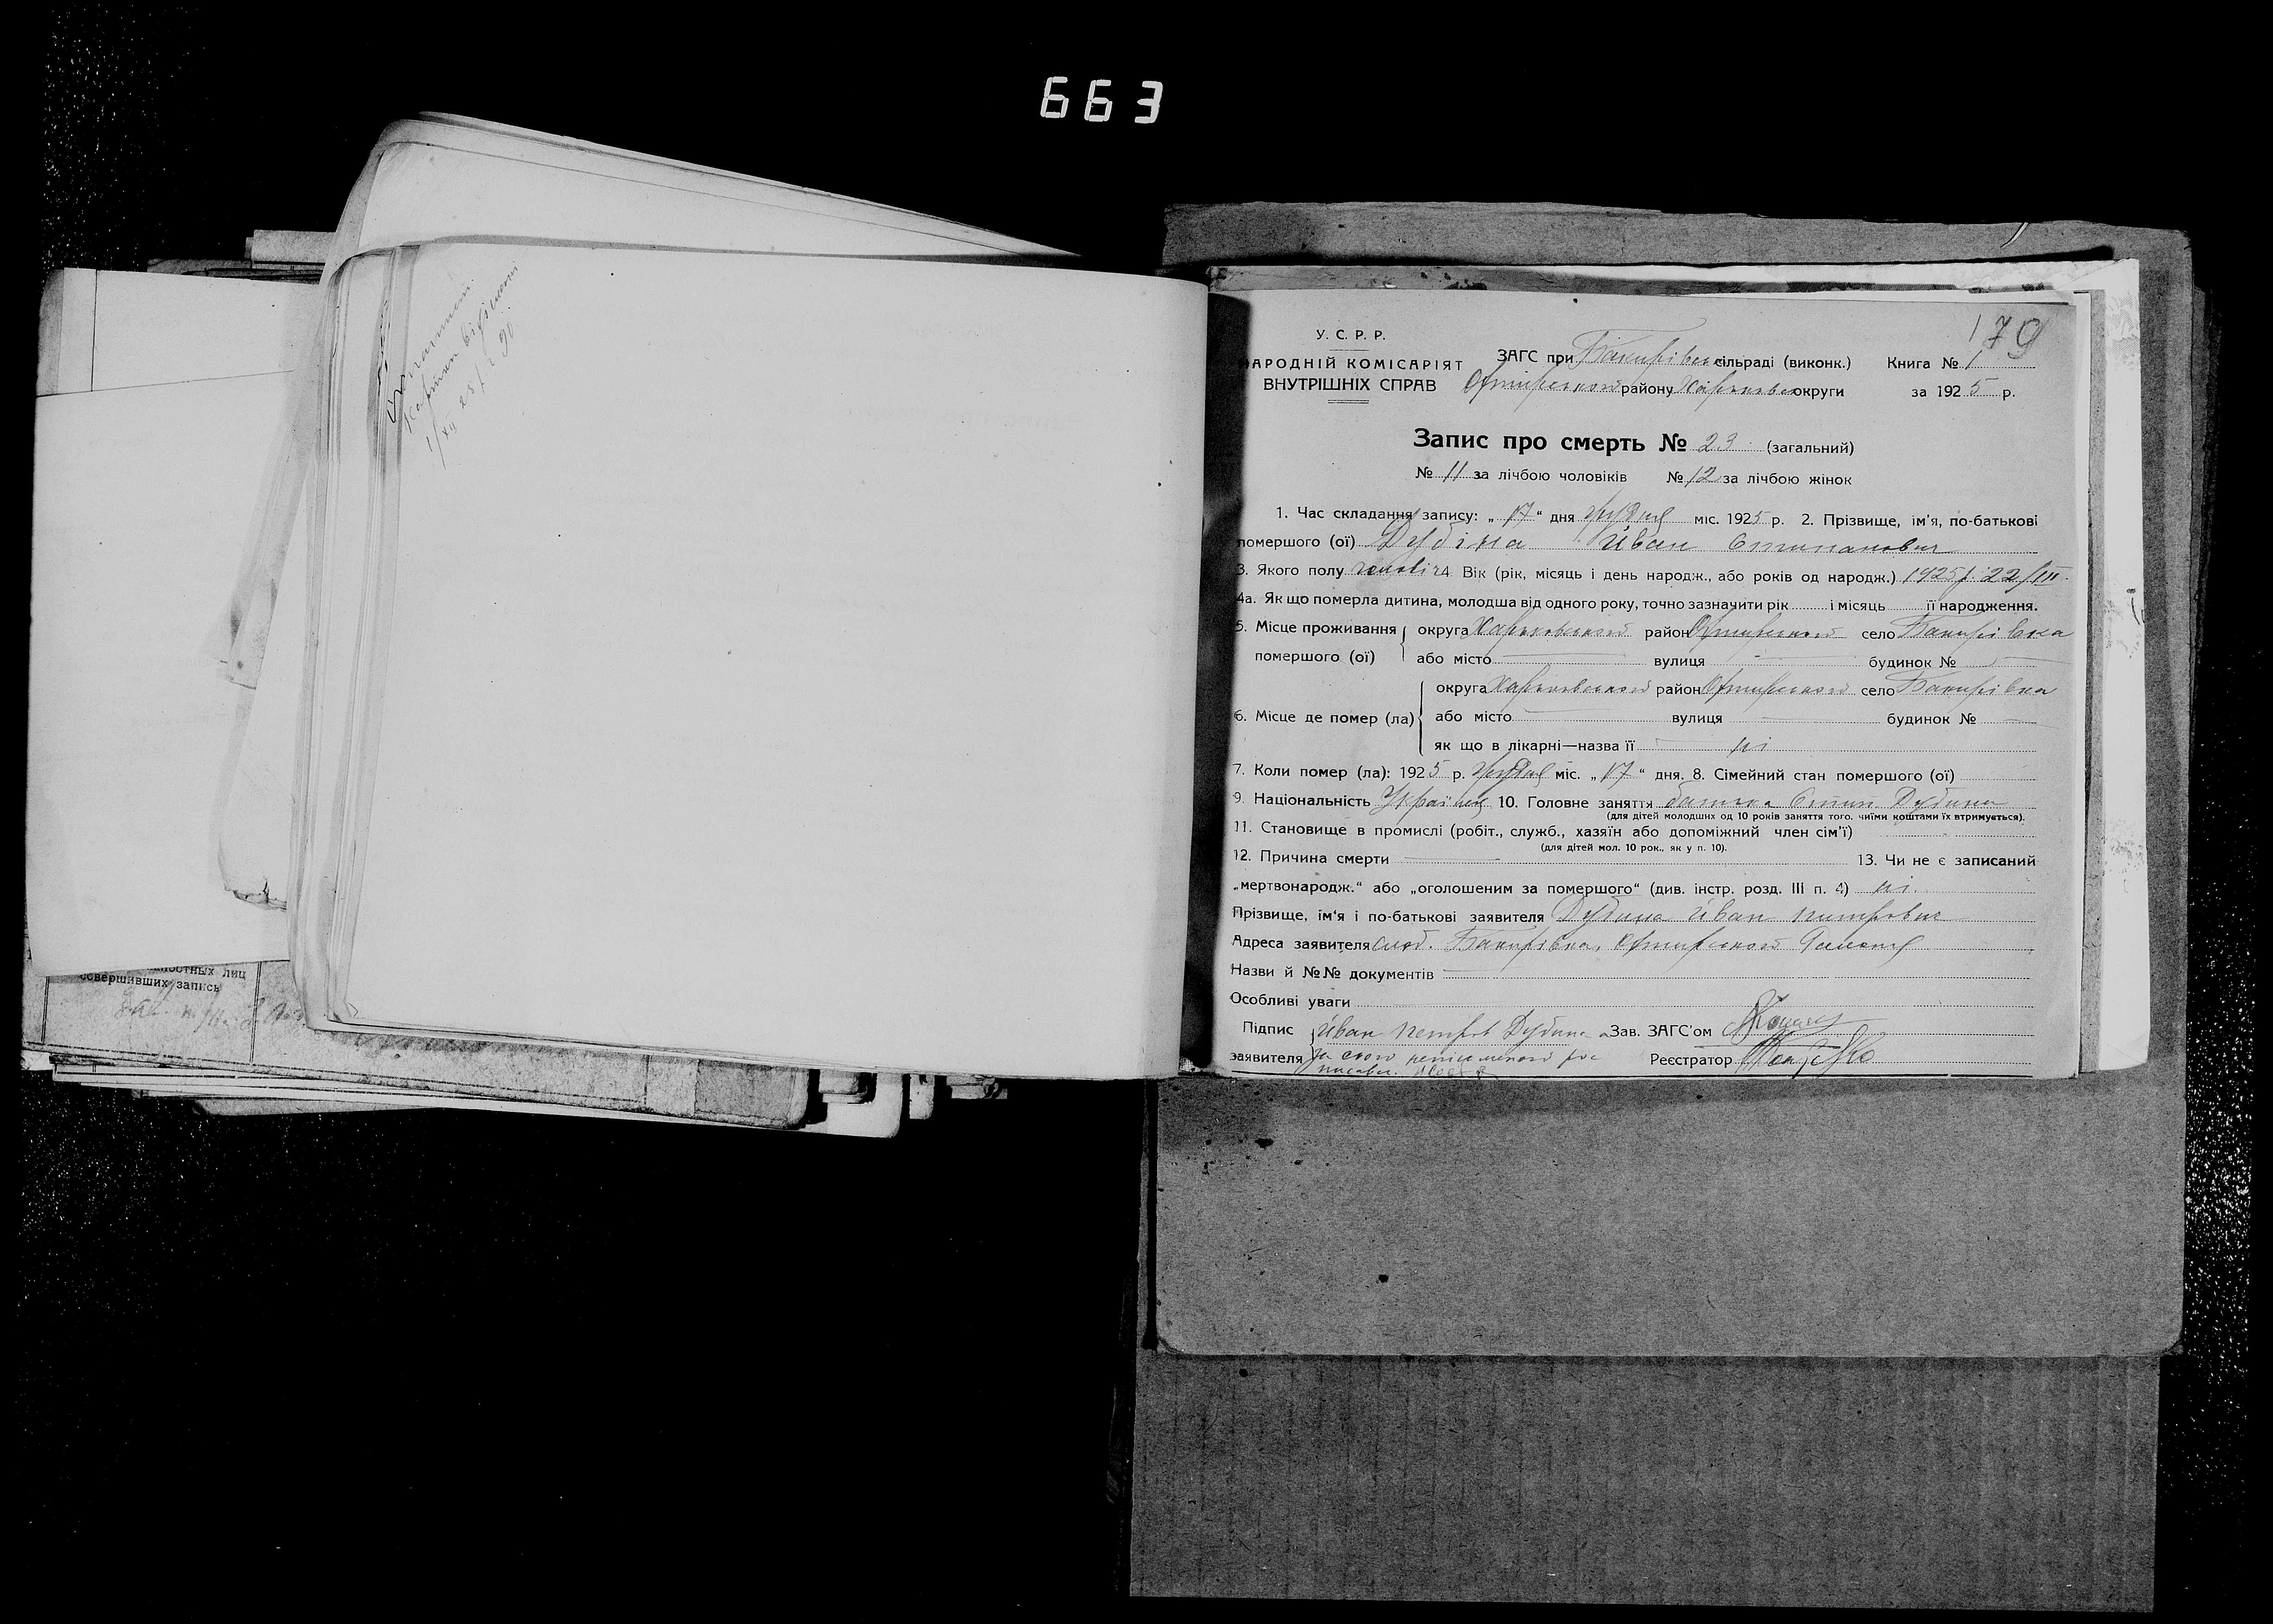 663
179
У. С. Р. Р.
НАРОДНІЙ КОМІСАРІЯТ
ВНУТРІШНІХ СПРАВ
ЗАГС при Бакирівск сільраді (виконк.) Книга № 1
району Харьковск округи за 1925 р.
Запис про смерть № 23 (загальний)
№ 11 за лічбою чоловіків № 12 за лічбою жінок
1. Час складання запису: „17“ дня грудня міс. 1925 р. 2. Прізвище, ім'я, по-батькові
помершого (ої) Дубіна Иван Степанович
3. Якого полу чоловіч 4 Вік (рік, місяць і день народж., або років од народж.) 1925 р. 22/III.
4а. Як що померла дитина, молодша від одного року, точно зазначити рік і місяць її народження.
5. Місце проживання округа Харьковської район село Бакирівка
помершого (ої) або місто вулиця будинок №
округа Харьковської район село Бакирівка
6. Місце де помер (ла) або місто вулиця будинок №
як що в лікарні—назва її ні
7. Коли помер (ла): 1925 р. грудня міс. „17“ дня. 8. Сімейний стан помершого (ої)
9. Національність Украінец 10. Головне заняття батька Степ. Дубина
(для дітей молодших од 10 років заняття того, чиїми коштами їх втримується).
11. Становище в промислі (робіт., служб., хазяїн або допоміжний член сім'ї)
(для дітей мол. 10 рок., як у п. 10).
12. Причина смерти 13. Чи не є записаний
„мертвонародж.“ або „оголошеним за помершого“ (див. інстр. розд. III п. 4) ні.
Прізвище, ім'я і по-батькові заявителя Дубина Иван петрович
Адреса заявителя слоб. Бакирівка,
Назви й №№ документів
Особливі уваги
Підпис Иван петров Дубина Зав. ЗАГС'ом
заявителя Реєстратор
ностных лиц
совершивших запись